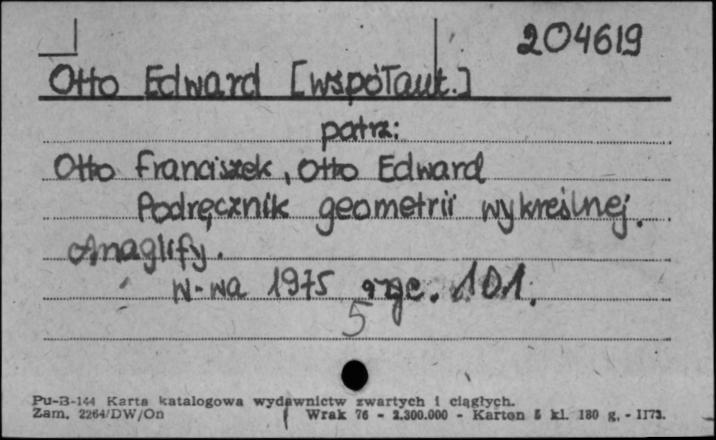 204619
Otto Edward [współaut.]
patrz:
Otto Franciszek, Otto Edward
Podręcznik geometrii wykreślnej.
Anaglify.
W-wa 1975 ryc. 101.
5
Pu-B-144 Karta katalogowa wydawnictw zwartych i ciągłych.
Zam. 2264/DW/On Wrak 76 - 2.300.000 - Karton 5 kl. 180 g. - II73.